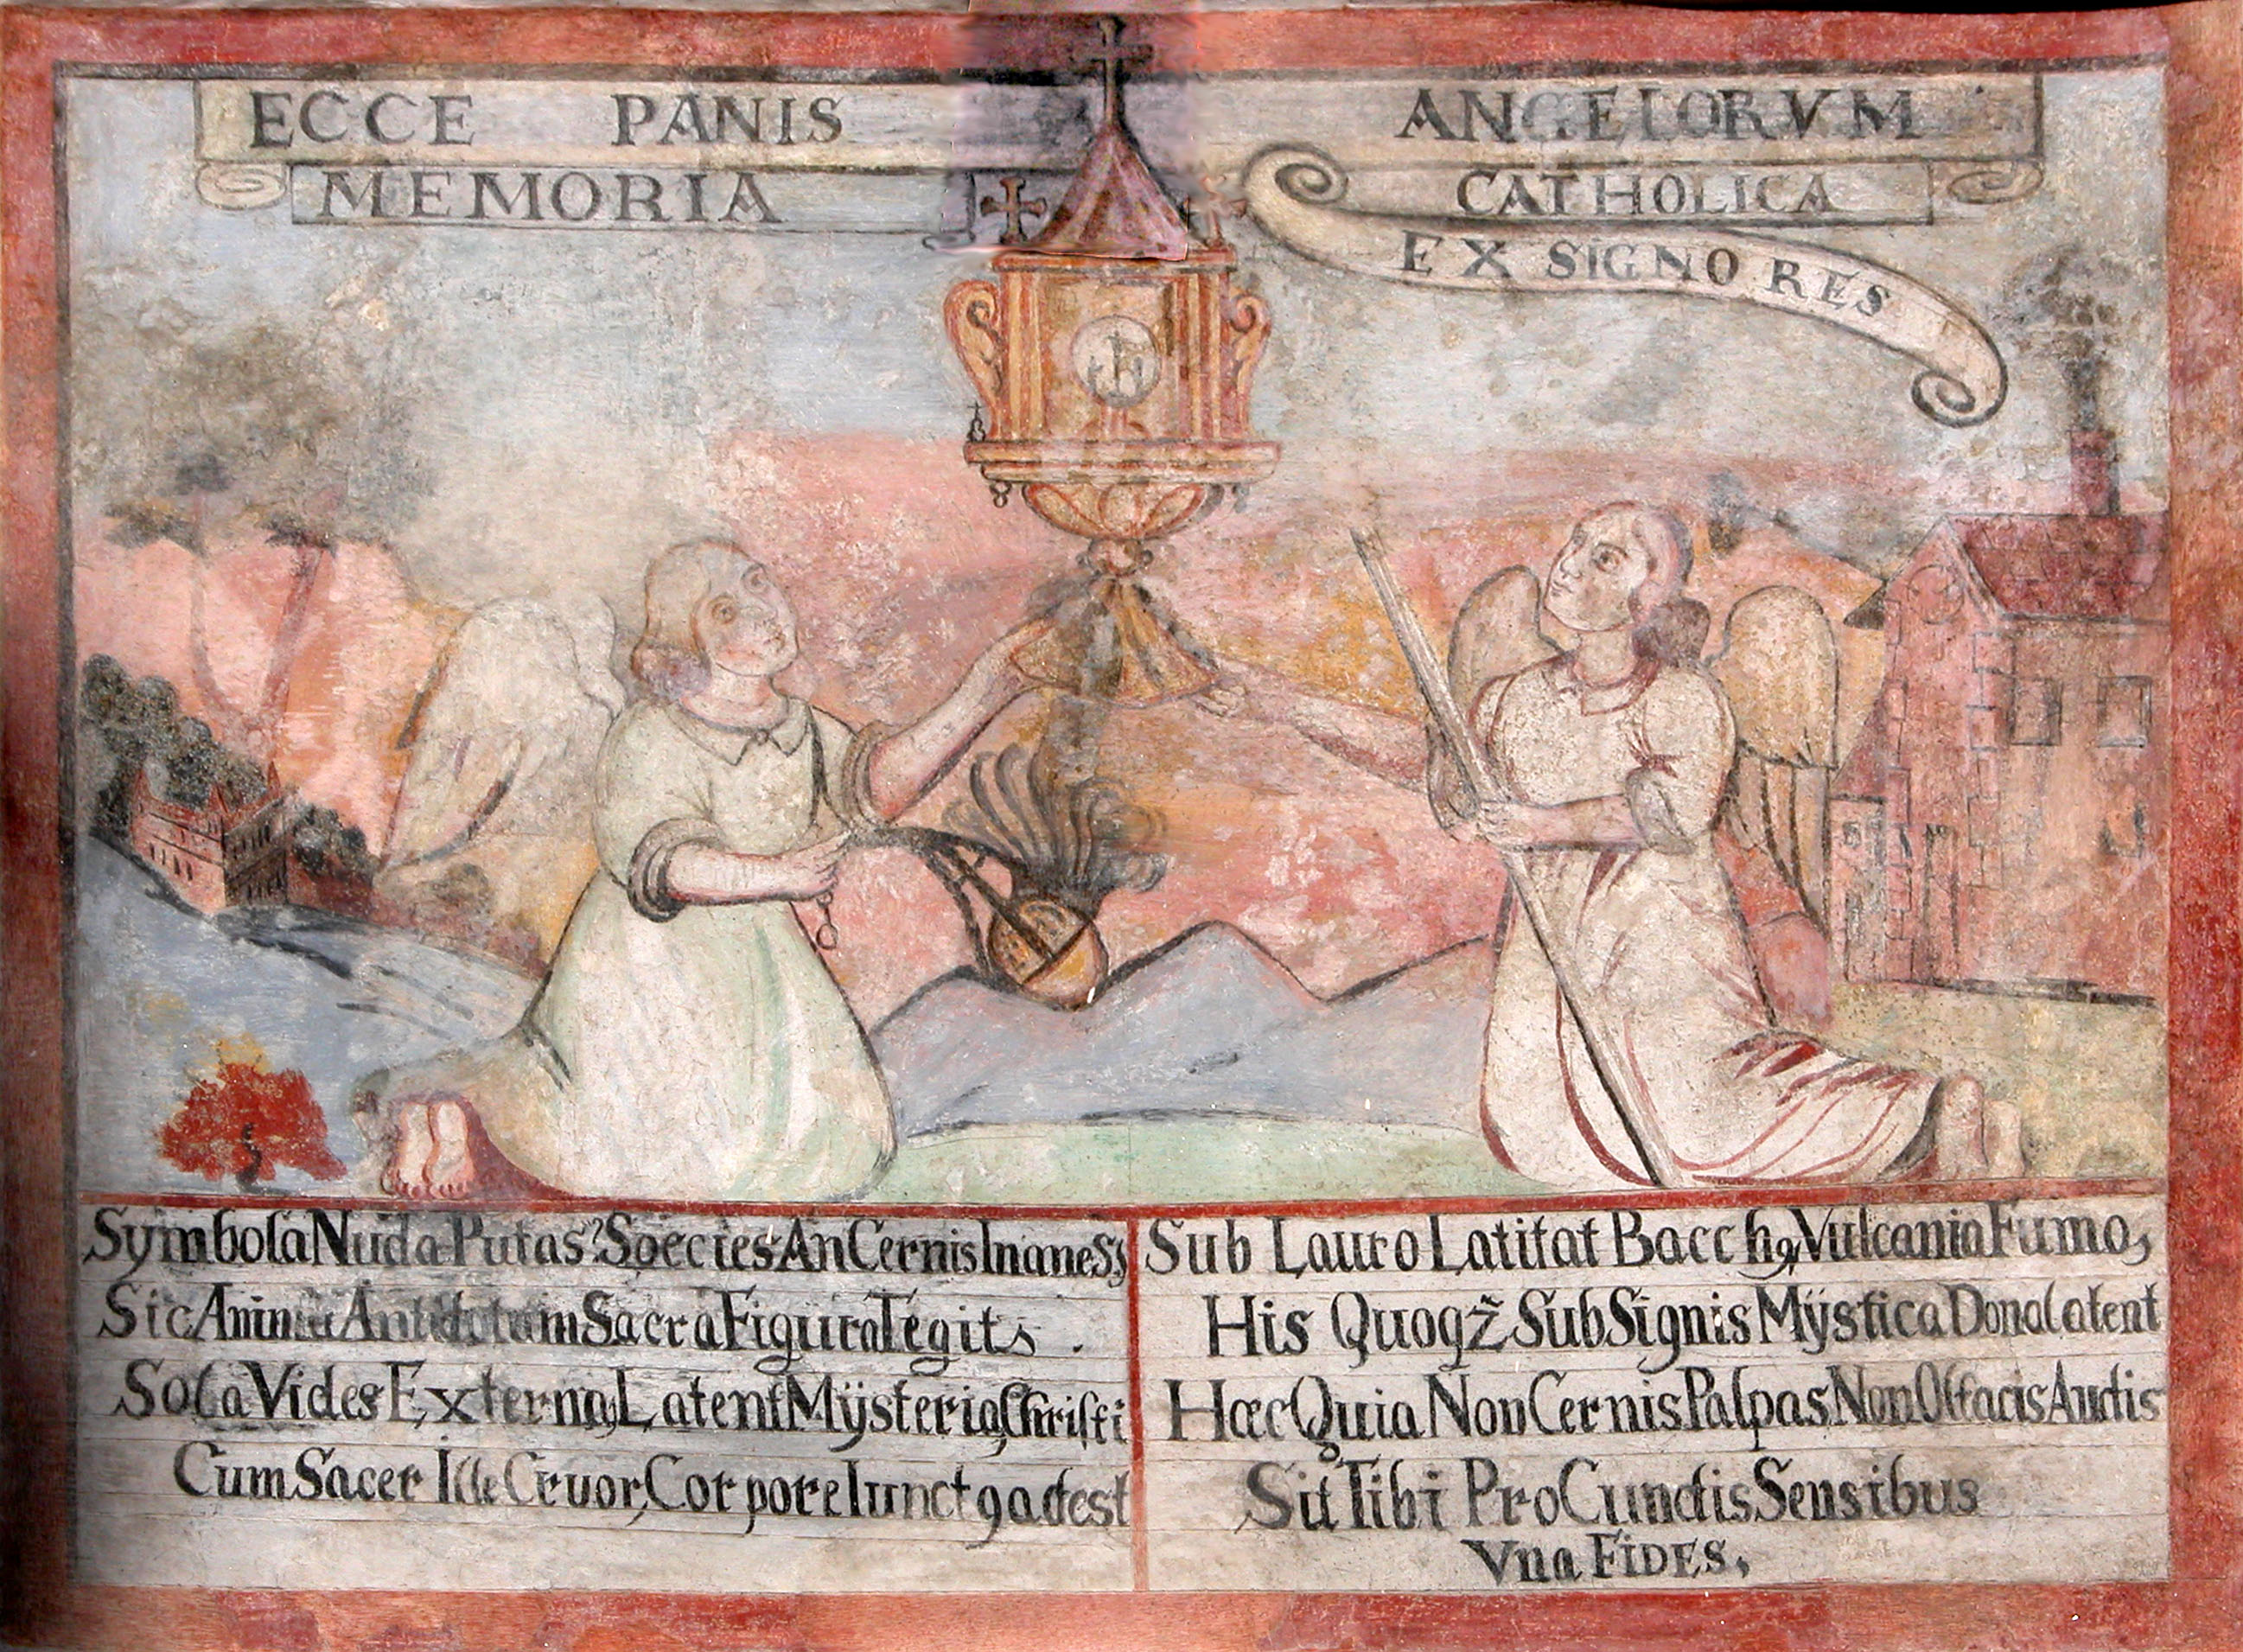 ECCE PANIS ANGELORVM
MEMORIA CATHOLICA
EX SIGNO RES
Symbola Nuda Putas? Species An Cernis Inanes;
Sic Animæ Antidotum Sacra Figura Tegit.
Sola Vides Externa, Latent Mÿsteria, Christi
Cum Sacer Ille Cruor, Corpore Iunctꝯ adest
Sub Lauro Latitat Bacchꝯ, Vulcania Fumo,
His Quoqꝫ Sub Signis Mÿstica Dona latent
Hæc Quia Non Cernis Palpas Non Olfacis Audis
Sit Tibi Pro Cunctis Sensibus
Vna FIDES,